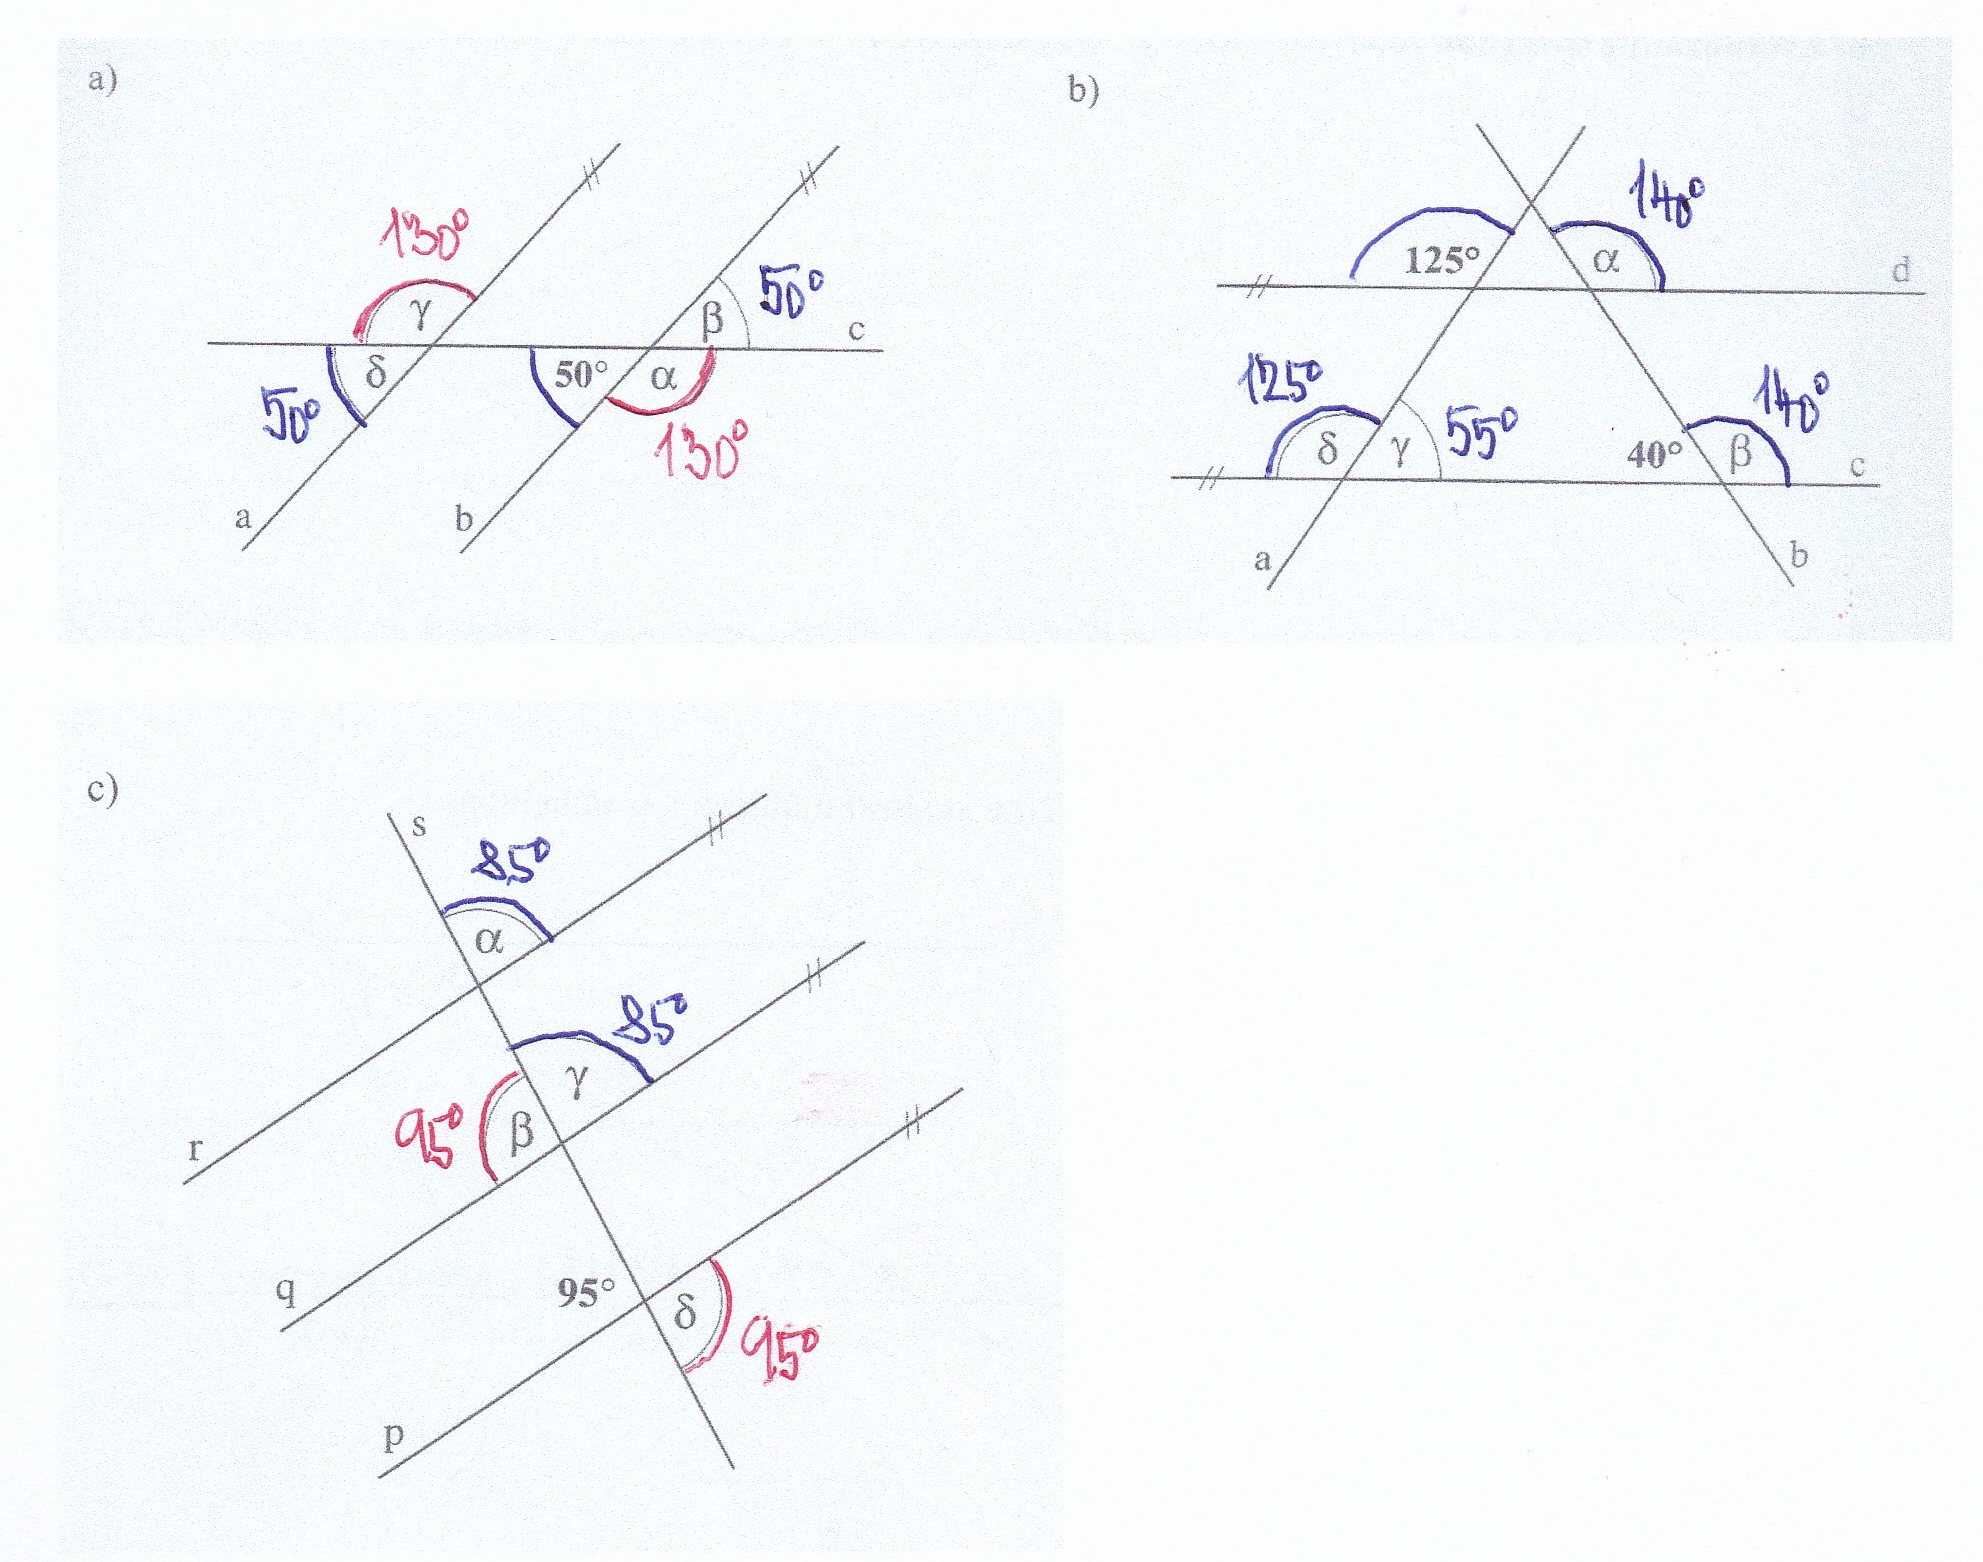 a)
130°
γ
50°
β
c
δ
50°
α
50°
130°
a
b
b)
140°
125°
α
d
125°
55°
140°
δ
γ
40°
β
c
a
b
c)
s
85°
α
85°
γ
95°
β
r
q
95°
δ
95°
p